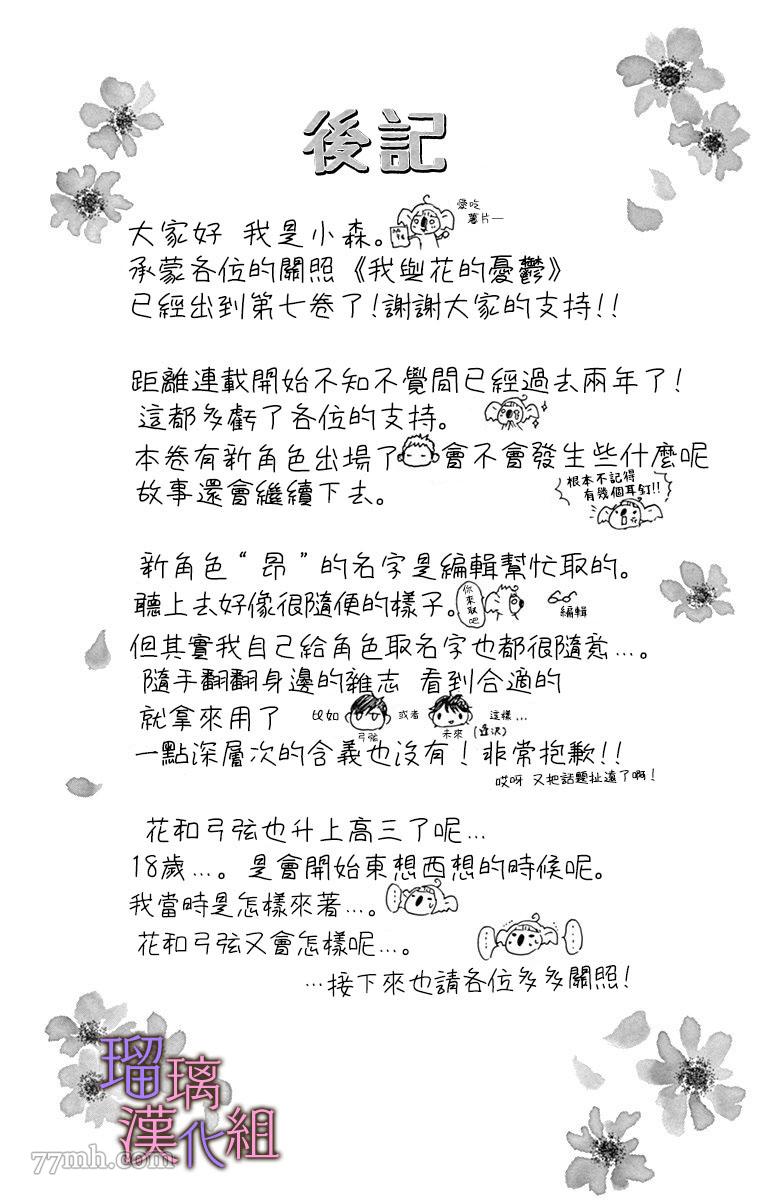 後記
大家好 我是小森。
愛吃
薯片—
承蒙各位的關照《我與花的憂鬱》
已經出到第七卷了!謝謝大家的支持!!
距離連載開始不知不覺間已經過去兩年了!
這都多虧了各位的支持。
本卷有新角色出場了 會不會發生些什麼呢
故事還會繼續下去。
根本不記得
有幾個耳釘!!
新角色“昂”的名字是編輯幫忙取的。
聽上去好像很隨便的樣子。
你來取吧
編輯
但其實我自己給角色取名字也都很隨意…。
隨手翻翻身邊的雜志 看到合適的
就拿來用了 比如 或者 這樣…
弓弦
未來
一點深層次的含義也沒有!非常抱歉!!
哎呀 又把話題扯遠了啊!
花和弓弦也升上高三了呢…
18歲…。是會開始東想西想的時候呢。
我當時是怎樣來著…。
花和弓弦又會怎樣呢…。
…接下來也請各位多多關照!
瑠璃
漢化組
77mh.com